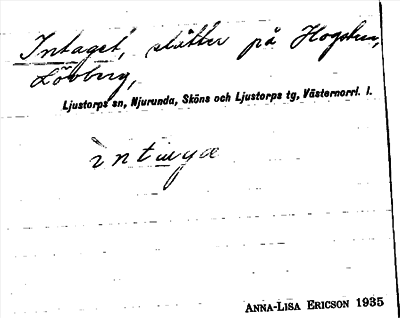 Intaget, slåtter på Hogsbın,
Lövberg,
Ljustorps sn, Njurunda, Sköns och Ljustorps tg, Västernorrl. l.
ANNA-LISA ERICSON 1935